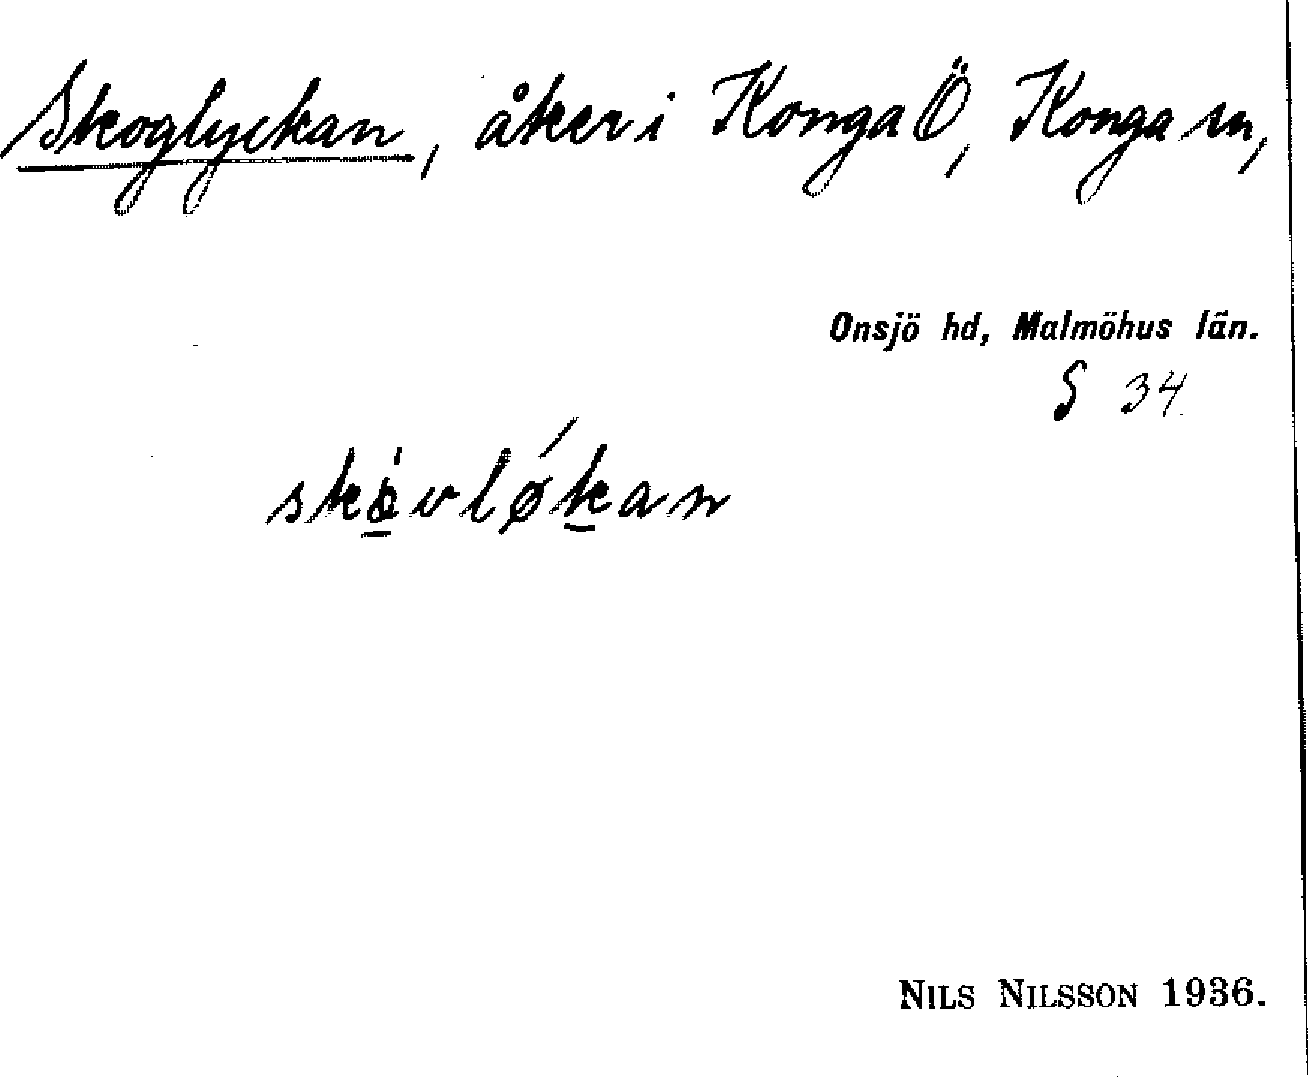 Skoglyckan, åker i Konga Ö, Konga sn,
Onsjö hd, Malmöhus län.
S 34
NILS NILSSON 1936.